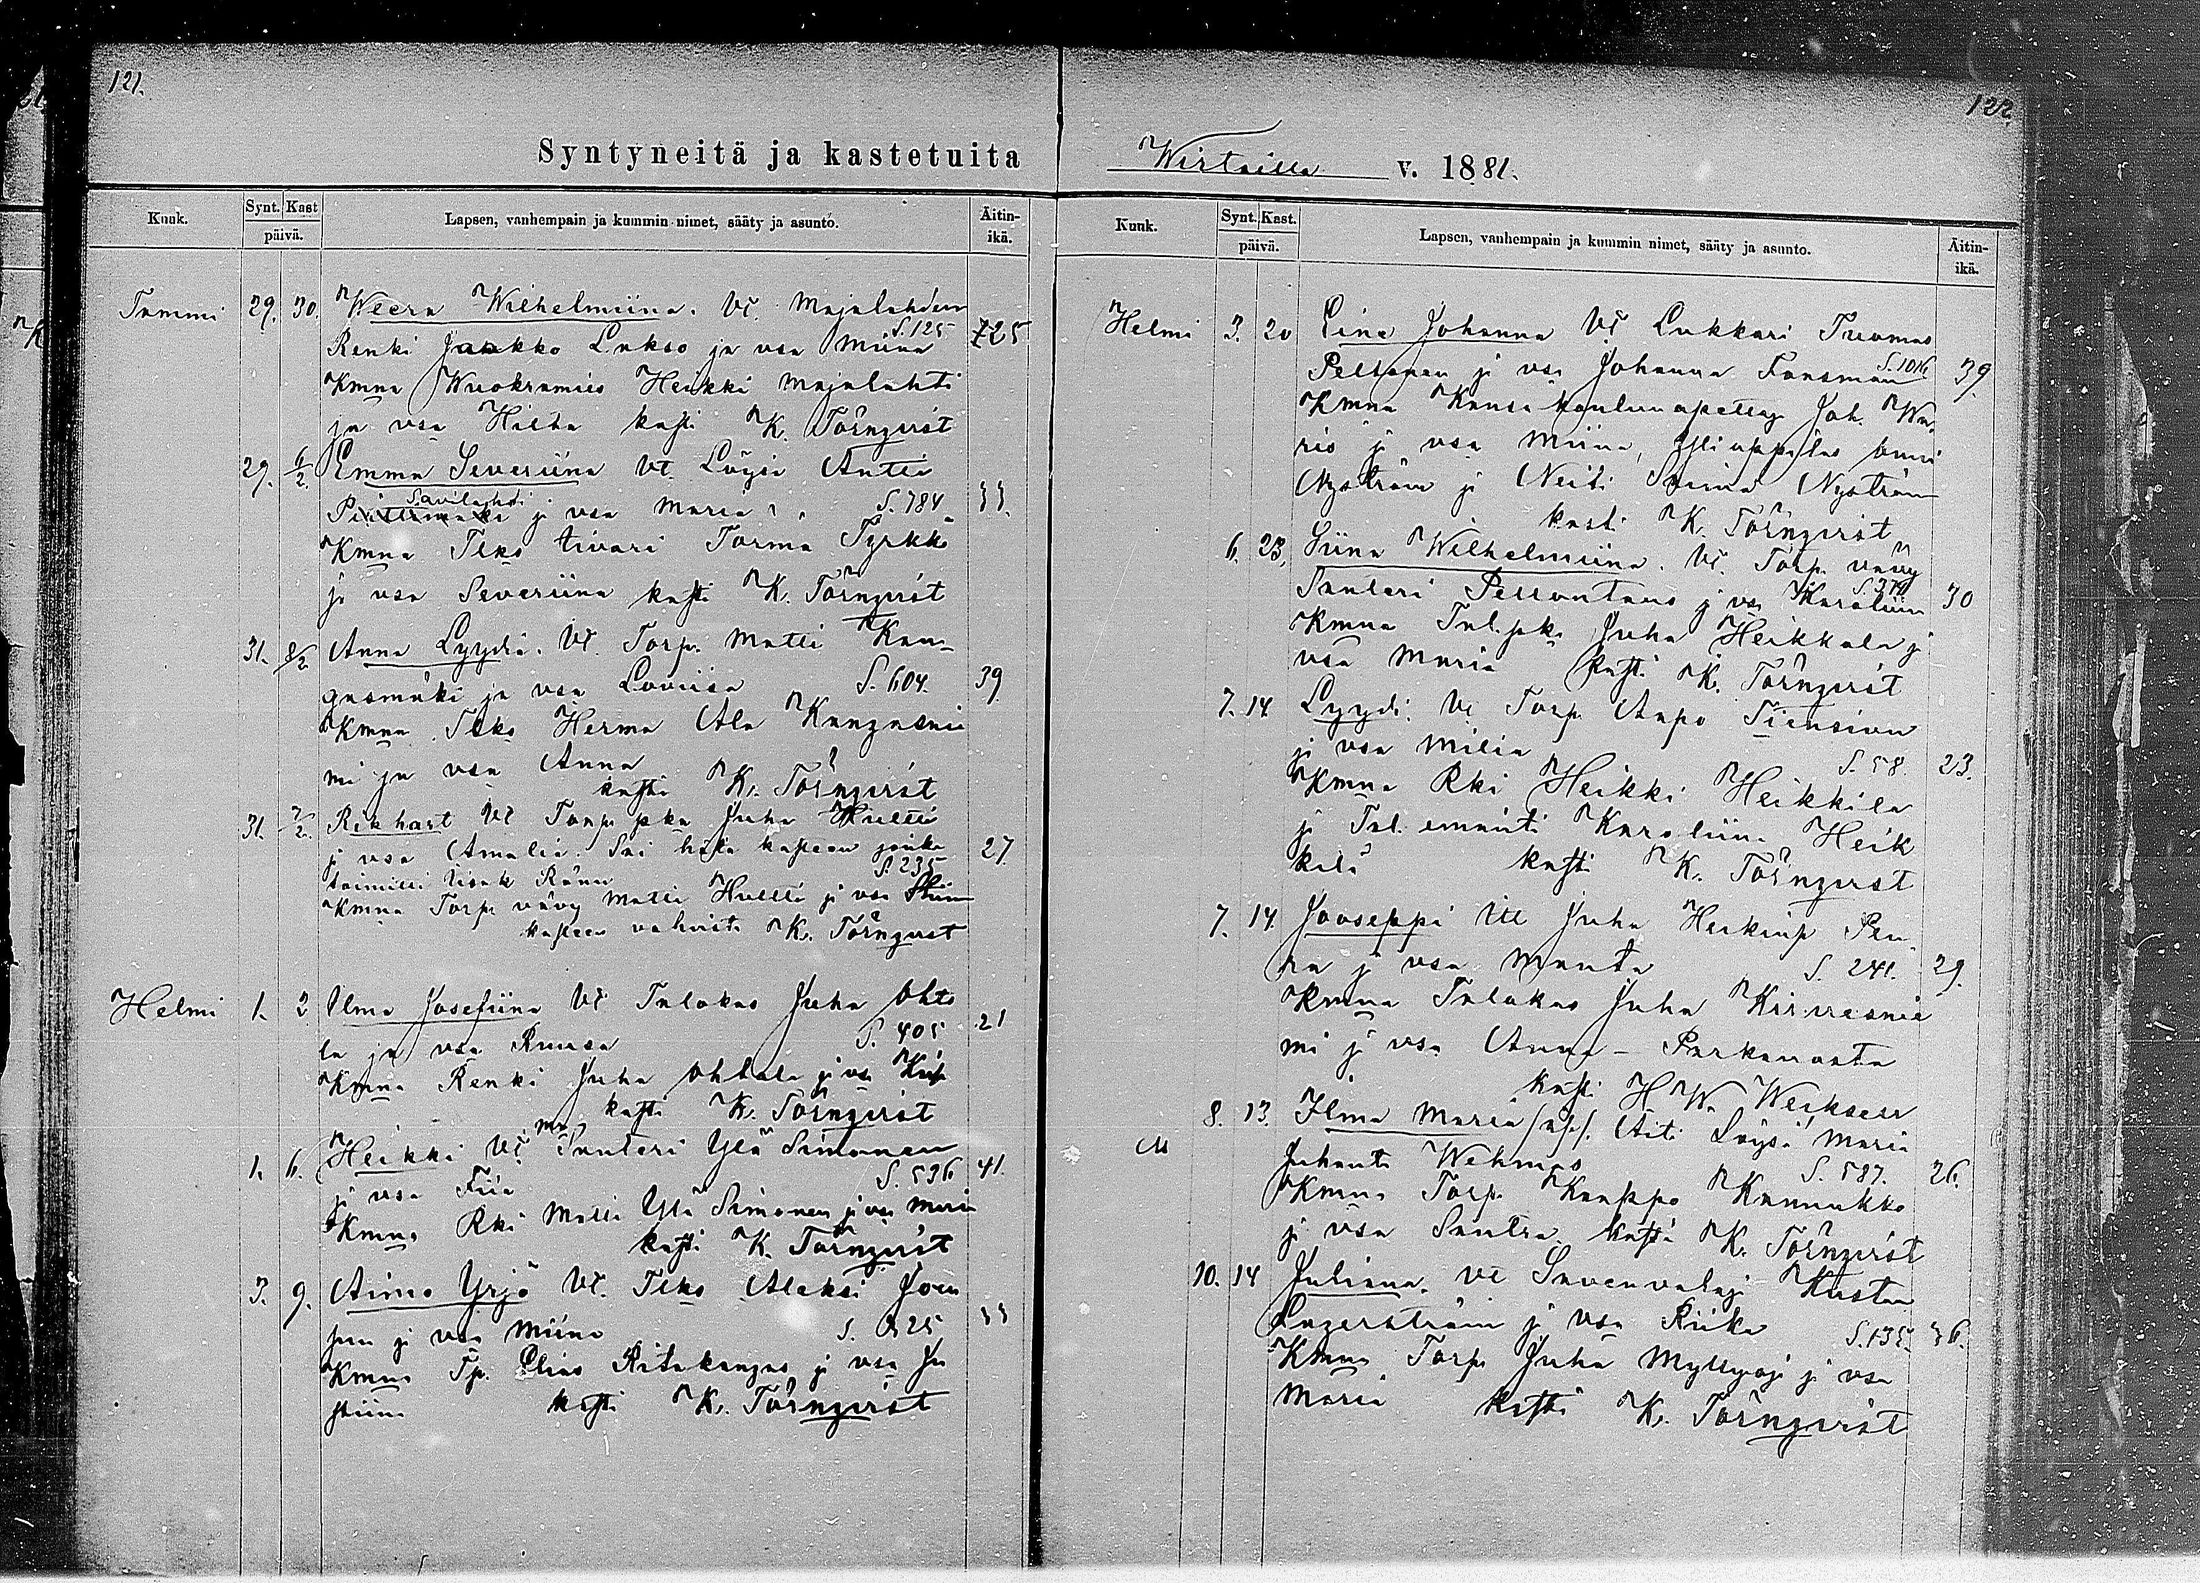 121.
Syntyneitä ja kastetuita
Kuuk.
Synt. Kast
päivä.
Lapsen, vanhempain ja kummin nimet, sääty ja asunto.
Äitin-
ikä.
Tammi 29. 30. Weera Wilhelmiina. Vt. Majalahden
Renki Jaakko Lukso ja vsa Miina S. 125 25
Kmna Wuokramies Heikki Majalahti
ja vsa Hilta kasti K. Törnqvist
29. 6/2. Emma Severiina Vt. Löysä Antti
Savilahti
ja vsa Maria S. 784 33.
Kmna Tlks Torma Tyrkkö
ja vsa Severiina kasti K. Törnqvist
31. 8/2 Anna Lyydi. Vt. Torp. Matti Kan-
gasmäki ja vsa Loviisa S. 604. 39
Kmna Tlks Herma Ala Kangasnie
mi ja vsa Anna
kasti K. Törnqvist
31. 7/2. Rikhart Vt Torp. pka Juha Hutti
j vsa Amalia. Sai hätä kasteen jonka
toimitti Iisak S. 235 27
Kmna Torp. vävy Matti Hutti j vsa
kasteen vahvisti K. Törnqvist
Helmi 1. 2. Ilma Josefiina Vt Talokas Juha Ohto
la ja vsa Ruusa S. 405 21
Kmna Renki Juha Ohtola j vsa
kasti K. Törnqvist
1. 6. Heikki Vt Santeri Ylä Simonen
j vsa Fiia S. 536 41.
Kmna Rki Matti Ylä Simonen j vsa Maria
kasti K. Törnqvist
3. 9. Aimo Yrjö Vt. Tlks Aleksi Joen
suu j vsa Miina S. 825 33
Kmna Tp. Elias Ritakangas j vsa Ju
stiina kasti K. Törnqvist
122.
Wirtailla v. 1881.
Kuuk.
Synt. Kast.
päivä.
Lapsen, vanhempain ja kummin nimet, sääty ja asunto.
Äitin-
ikä.
Helmi 3. 20 Eine Johanna Vt Lukkari Tuomas
Peltonen j vsa Johanna Forsman S. 1016 39.
Kmna Kansa koulunopettaj Joh. Wa-
ris j vsa Miina, Ylioppilas Onni
Nyström j Neiti Nyström
kasti K. Törnqvist
6. 23. Siina Wilhelmiina. Vt. Torp. vävy
Santeri j vsa Karoliina S. 379 30
Kmna Tal. pka Juha Heikkala j
vsa Maria kasti K. Törnqvist
7. 14 Lyydi. Vt Torp. Aapo Tiensivu
j vsa Milia S. 58 23.
Kmna Rki Heikki Heikkila
j Tal. emäntä Karoliina Heik
kilä kasti K. Törnqvist
7. 14. Jooseppi Vt Juha Heikinp Pen-
na j vsa Manta S. 241. 29.
Kmna Talokas Juha Kirvesnie
mi j vsa Anna - Parkanosta
kasti H W. Weikseri
8. 13. Ilma Maria /a/. Äiti Löysä Maria
Juhant. Wehmas S. 587. 26.
Kmna Torp. Kaappo Kanuukko
j vsa Santra. kasti K. Törnqvist
10. 14 Juliana. Vt Savenvalaj Kustaa
Lagerström j vsa Riika S. 135. 36.
Kmna Torp. Juha Myllyoja j vsa
Maria kasti K. Törnqvist